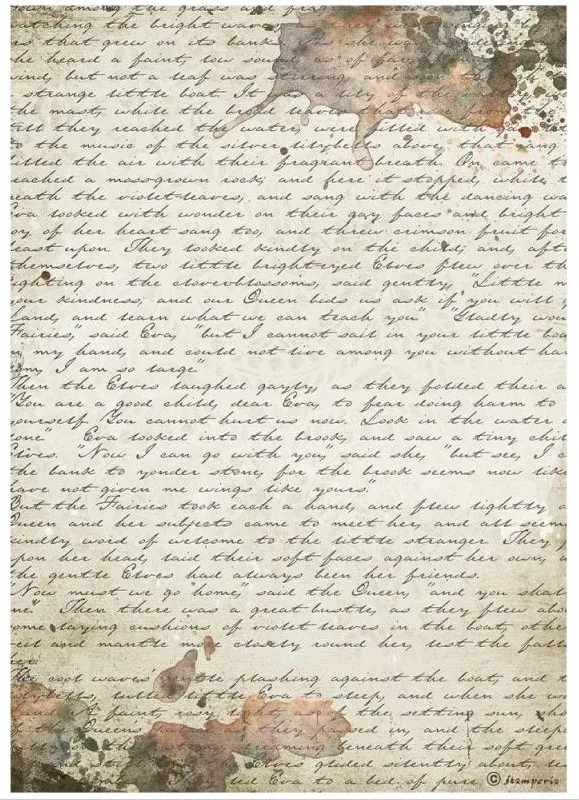 down among the grass and fra
watching the bright waves
rs that grew on its banks. As she was
he heard a faint, low sound, as of far
wind, but not a leaf was stirring, and soon
strange little boat. It was a lily of the
the mast, while the broad leaves
till they reached the water, were filled with
to the music of the silver lilybells above, that rang
filled the air with their fragrant breath. On came t
reached a mossgrown rock; and here it stopped, while t
eath the violet-leaves, and sang with the dancing wa
Eva looked with wonder on their gay faces and bright
oy of her heart sang too, and threw crimson fruit for
feast upon. They looked kindly on the child, and, afte
themselves, two little bright-eyed Elves flew over th
ighting on the cloverblossoms, said gently, "Little m
your kindness; and our Queen bids us ask if you will g
Land, and learn what we can teach you." "Gladly wou
Fairies," said Eva, "but I cannot sail in your little boa
n my hand, and could not live among you without har
om, I am so large."
Then the Elves laughed gayly, as they folded their a
"You are a good child, dear Eva, to fear doing harm to
yourself. You cannot hurt us now. Look in the water
one." Eva looked into the brook, and saw a tiny chil
Elves. "Now I can go with you," said she, "but see, I c
the bank to yonder stone, for the brook seems now like
have not given me wings like yours."
But the Fairies took each a hand, and flew lightly o
Queen and her subjects came to meet her, and all seem
kindly word of welcome to the little stranger. They
pon her head, laid their soft faces against her own, a
he gentle Elves had always been her friends.
"Now must we go home," said the Queen, "and you shal
ne." Then there was a great bustle, as they flew abou
ome laying cushions of violet leaves in the boat, other
eil and mantle more closely round her, lest the fall
her.
The cool waves' gentle plashing against the boat, and t
bells, lulled little Eva to sleep, and when she wo
and. A faint, rosy light, as of the setting sun, sho
of the Queen's palace as they passed in, and the sleep
streaming beneath their soft gree
and still, Elves glided silently about,
led Eva to a bed of pure
© stamperia